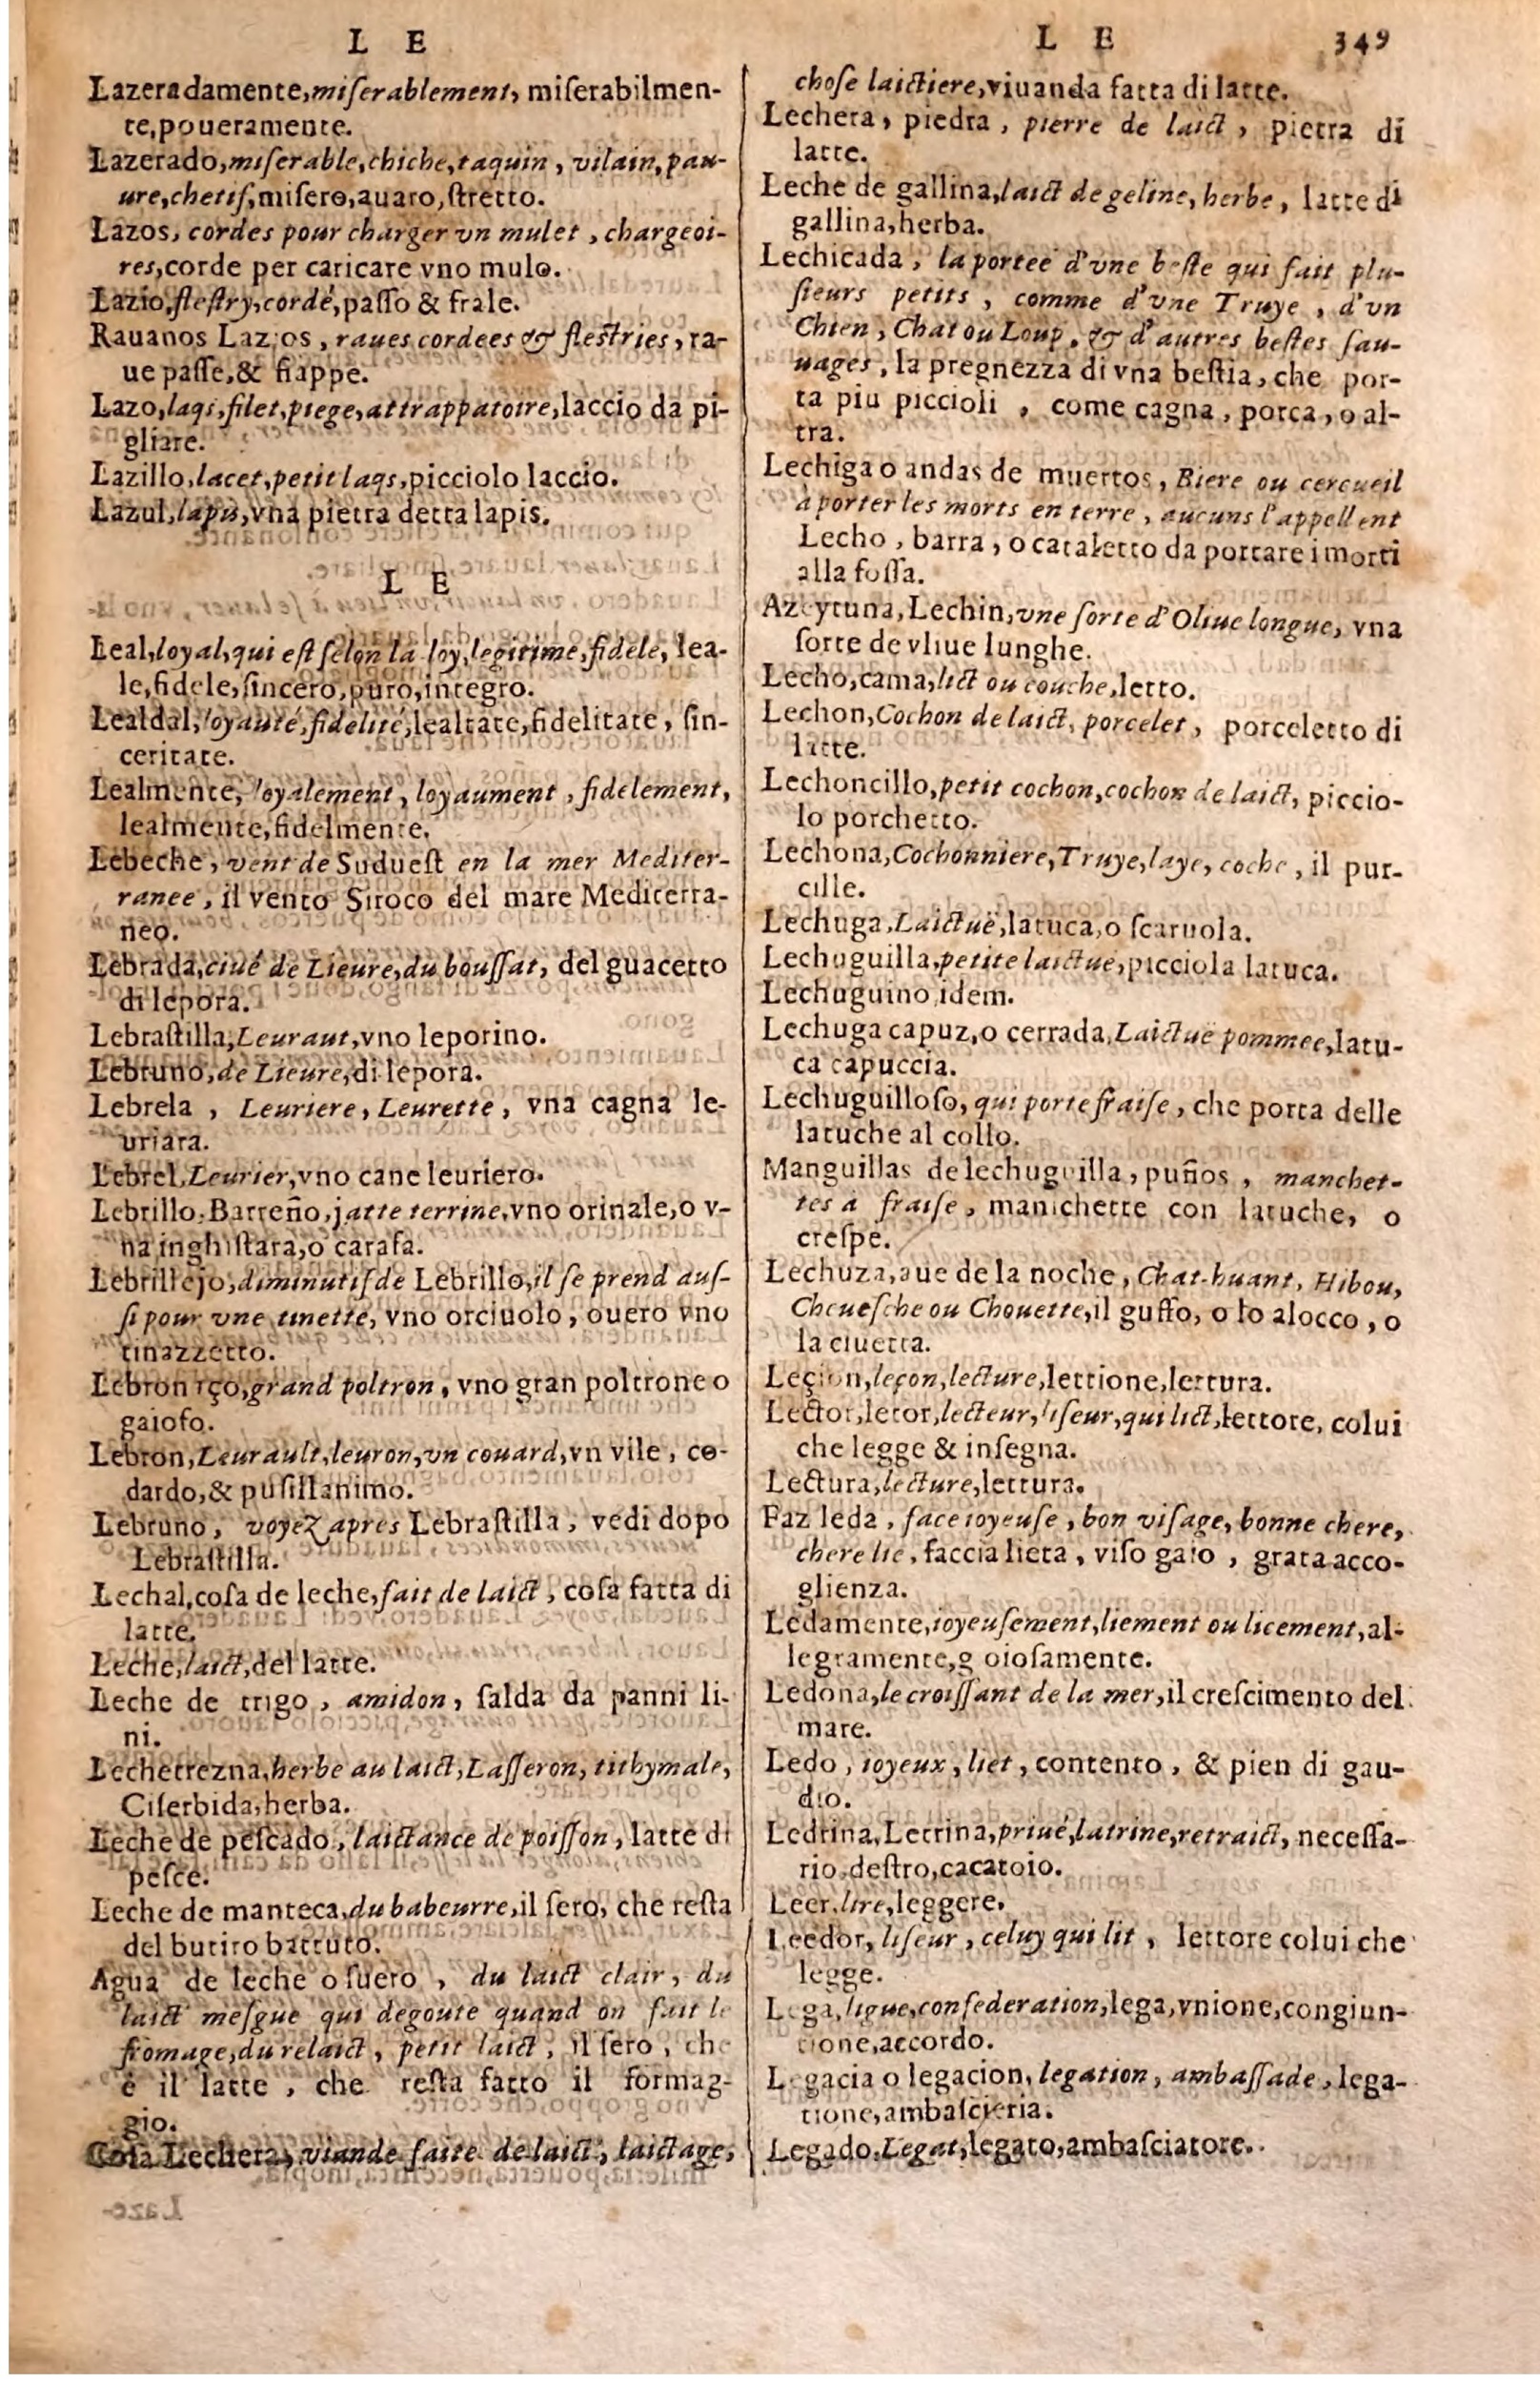 L E
Lazeradamente,miſerablement, miſerabilmen-
te,poueramente.
Lazerado,miſerable,chiche,taquin, vilain,pau-
ure,chetif,miſero,auaro,ſtretto.
Lazos, cordes pour charger vn mulet, chargeoi-
res,corde per caricare vno mulo.
Lazio,fleſtry,cordé,paſſo & frale.
Rauanos Lazios, raues cordees & fleſtries, ra-
ue paſſe,& fiappe.
Lazo,laqs,filet,piege,attrappatoire,laccio da pi-
gliare.
Lazillo,lacet,petit laqs,picciolo laccio.
Lazul,lapis,vna pietra detta lapis.
L E
Leal,loyal,qui eſt ſelon la loy,legitime,fidele, lea-
le,fidele,ſincero,puro,integro.
Lealdal,loyauté,fidelité,lealtate,fidelitate, ſin-
ceritate.
Lealmente, loyalement, loyaument, fidelement,
lealmente,fidelmente.
Lebeche, vent de Suduest en la mer Mediter-
ranee, il vento Siroco del mare Mediterra-
neo.
Lebrada,ciué de Lieure,du bouſſat, del guacetto
di lepora.
Lebraſtilla,Leuraut,vno leporino.
Lebruno,de Lieure,di lepora.
Lebrela, Leuriere, Leurette, vna cagna le-
uriara.
Lebrel,Leurier,vno cane leuriero.
Lebrillo,Barreño,jatte terrine,vno orinale,o v-
na inghiſtara,o carafa.
Lebrillejo,diminutif de Lebrillo,il ſe prend auſ-
ſi pour vne tinette, vno orciuolo, ouero vno
tinazzetto.
Lebronaço,grand poltron, vno gran poltrone o
gaiofo.
Lebron,Leurault,leuron,vn couard,vn vile, co-
dardo,& puſillanimo.
Lebruno, voyez apres Lebraſtilla, vedi dopo
Lebraſtilla.
Lechal,coſa de leche,fait de laict, coſa fatta di
latte.
Leche,laict,del latte.
Leche de trigo, amidon, ſalda da panni li-
ni.
Lechetrezna,herbe au laict,Laſſeron, tithymale,
Ciſerbida,herba.
Leche de peſcado, laictance de poiſſon, latte di
peſce.
Leche de manteca,du babeurre,il ſero, che reſta
del butiro battuto.
Agua de leche o ſuero, du laict clair, du
laict meſgue qui degoute quand on fait le
fromage,du relaict, petit laict, il ſero, che
è il latte, che reſta fatto il formag-
gio.
Coſa Lechera, viande faite de laict, laictage,
L E 349
choſe laictiere,viuanda fatta di latte.
Lechera, piedra, pierre de laict, pietra di
latte.
Leche de gallina,laict de geline, herbe, latte di
gallina,herba.
Lechicada, la portee d'vne beſte qui fait plu-
ſieurs petits, comme d'vne Truye, d'vn
Chien, Chat ou Loup, & d'autres beſtes ſau-
uages, la pregnezza di vna beſtia, che por-
ta piu piccioli, come cagna, porca, o al-
tra.
Lechiga o andas de muertos, Biere ou cercueil
à porter les morts en terre, aucuns l'appellent
Lecho, barra, o cataletto da portare i morti
alla foſſa.
Azeytuna,Lechin,vne ſorte d'Oliue longue, vna
ſorte de vliue lunghe.
Lecho,cama,lict ou couche,letto.
Lechon,Cochon de laict, porcelet, porceletto di
latte.
Lechoncillo,petit cochon,cochon de laict, piccio-
lo porchetto.
Lechona,Cochonniere,Truye,laye, coche, il pur-
cille.
Lechuga,Laictuë,latuca,o ſcaruola.
Lechuguilla,petite laictuë,picciola latuca.
Lechuguino,idem.
Lechuga capuz,o cerrada,Laictuë pommee,latu-
ca capuccia.
Lechuguilloſo, qui porte fraiſe, che porta delle
latuche al collo.
Manguillas de lechuguilla, puños, manchet-
tes à fraiſe, manichette con latuche, o
creſpe.
Lechuza,aue de la noche, Chat-huant, Hibou,
Cheueſche ou Chouette,il guffo, o lo alocco, o
la ciuetta.
Leçion,leçon,lecture,lettione,lettura.
Lector,letor,lecteur,liſeur,qui lict,lettore, colui
che legge & inſegna.
Lectura,lecture,lettura.
Faz leda, face ioyeuſe, bon viſage, bonne chere,
chere lie, faccia lieta, viſo gaio, grata acco-
glienza.
Ledamente,ioyeuſement,liement ou licement,al-
legramente,gioioſamente.
Ledona,le croiſſant de la mer,il creſcimento del
mare.
Ledo, ioyeux, liet, contento, & pien di gau-
dio.
Ledrina,Letrina,priué,latrine,retraict, neceſſa-
rio,deſtro,cacatoio.
Leer,lire,leggere.
Leedor, liſeur, celuy qui lit, lettore colui che
legge.
Lega,ligue,confederation,lega,vnione,congiun-
tione,accordo.
Legacia o legacion, legation, ambaſſade, lega-
tione,ambaſcieria.
Legado,Legat,legato,ambaſciatore.